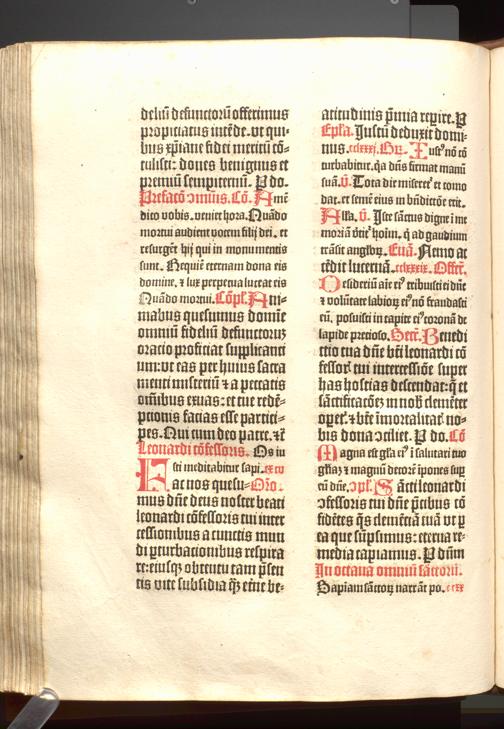 deliũ defunctorũ offerimus
propiciatus intẽde. vt qui-
bus xp̃iane fidei meritũ cõ-
tulisti: dones benignus et
premiũ sempiternũ. P do.
Prefacõ ɔmunis. Cõ. Amẽ
dico vobis. veniet hora. Quãdo
mortui audient vocem filij dei. et
resurgẽt hij qui in monumentis
sunt. Requiẽ eternam dona eis
domine. ⁊ lux perpetua luceat eis
Quãdo mortui. Cõpl. Ani-
mabus quesumus domine
omniũ fideliũ defunctorꝝ
oracio proficiat supplicanti
um: vt eas per huius sacra
menti misteriũ ⁊ a peccatis
om̃ibus exuas: et tue redẽ-
ptionis facias esse partici-
pes. Qui cum deo patre. ⁊ẽ
Leonardi cõfessoris. Os iu
sti meditabitur sapi.
Fac nos quesu- Orõ.
mus dñe deus noster beati
leonardi cõfessoris tui inter
cessionibus a cunctis mun
di ꝑturbacionibus respira
re: eiusqꝫ obtentu tam p̃sen
tis vite subsidia qꝫ etẽne be-
atitudinis p̃mia reꝑire. P
Ep̃la. Iustũ deduxit domi-
nus. Gr̃. Iustꝰ nõ cõ
turbabitur. qa dñs firmat manũ
suã. V̄. Tota die miseret̃ et como
dat. et semẽ eius in bñdictõe erit.
Alla. V̄. Iste sãctus digne ĩ me
moriã ṽtit̃ hoĩm. q̃ ad gaudium
trãsit anglorꝫ. Euã. Nemo ac
cẽdit lucernã. Offert̃.
Desideriũ aĩe eiꝰ tribuisti ei dñe
⁊ volũtate labiorꝫ eiꝰ nõ fraudasti
eũ. posuisti in capite eiꝰ coronã de
lapide precioso. Secr̃. Benedi
ctio tua dñe bt̃i leonardi cõ
fessorꝭ tui intercessiõe super
has hostias descendat: q̃ et
sãctificatõeꝫ in nob̃ clemẽter
oꝑet̃. ⁊ bt̃e ĩmortalitat̃ no-
bis dona ɔciliet. P do. Cõ
Magna est gl̃a eiꝰ ĩ salutari tuo
gl̃iaꝫ ⁊ magnũ decorẽ ĩpones suꝑ
eũ dñe. ɔpl̃. Sãcti leonardi
ɔfessoris tui dñe p̃cibus cõ
fidẽtes q̃s clemẽtiã tuã vt ꝑ
ea que sũpsimus: eterna re-
media capiamus. P dñm
In octaua omniũ sãctorũ.
Sapiam sãctorꝫ narrãt po.